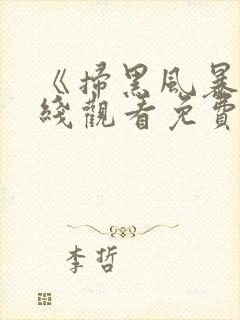 《掃黑風暴
綫觀看免費
李哲